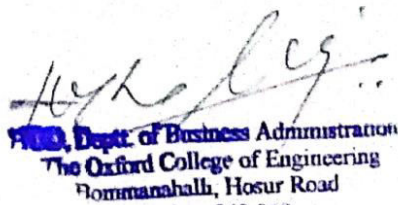 HOD, Deptt. of Business Administration
The Oxford College of Engineering
Bommanahalli, Hosur Road